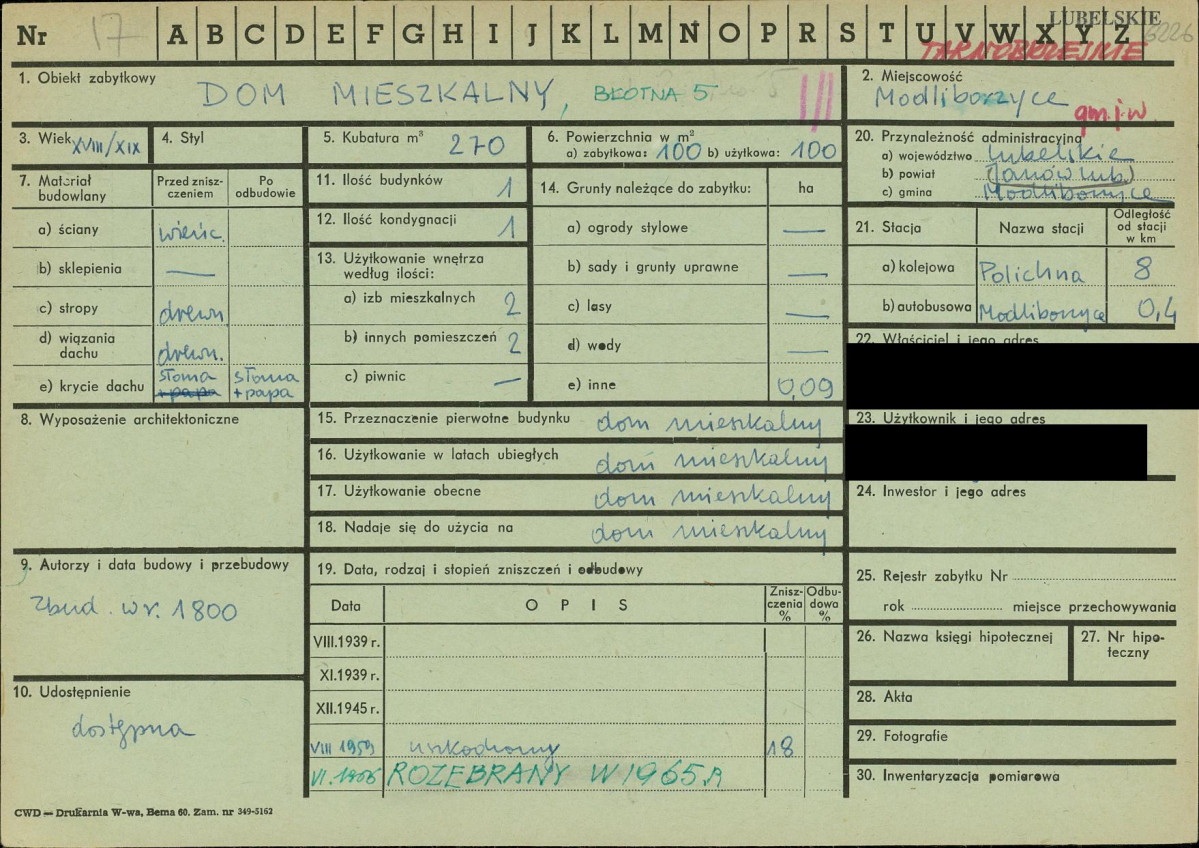 LUBELSKIE
Nr 17 A B C D E F G H I J K L M N O P R S T U V W X Y Z
TARNOBRZESKIE
1. Obiekt zabytkowy
DOM MIESZKALNY, BŁOTNA 5
2. Miejscowość
Modliborzyce
gm. j.w.
3. Wiek XVIII/XIX
4. Styl
5. Kubatura m³ 270
6. Powierzchnia w m²
a) zabytkowa: 100 b) użytkowa: 100
20. Przynależność administracyjna
a) województwo lubelskie
b) powiat (Janów Lub.)
c) gmina Modliborzyce
7. Materiał budowlany
Przed zniszczeniem
Po odbudowie
a) ściany wieńc.
b) sklepienia —
c) stropy drewn.
d) wiązania dachu drewn.
e) krycie dachu słoma + papa słoma + papa
11. Ilość budynków 1
12. Ilość kondygnacji 1
13. Użytkowanie wnętrza według ilości:
a) izb mieszkalnych 2
b) innych pomieszczeń 2
c) piwnic —
14. Grunty należące do zabytku: ha
a) ogrody stylowe —
b) sady i grunty uprawne —
c) lasy —
d) wody —
e) inne 0,09
21. Stacja Nazwa stacji Odległość od stacji w km
a) kolejowa Polichna 8
b) autobusowa Modliborzyce 0,4
22. Właściciel i jego adres
23. Użytkownik i jego adres
24. Inwestor i jego adres
8. Wyposażenie architektoniczne
15. Przeznaczenie pierwotne budynku dom mieszkalny
16. Użytkowanie w latach ubiegłych dom mieszkalny
17. Użytkowanie obecne dom mieszkalny
18. Nadaje się do użycia na dom mieszkalny
9. Autorzy i data budowy i przebudowy
Zbud. w r. 1800
10. Udostępnienie
dostępna
19. Data, rodzaj i stopień zniszczeń i odbudowy
Data OPIS Zniszczenia % Odbudowa %
VIII.1939 r.
XI.1939 r.
XII.1945 r.
VIII 1959 uszkodzony 18
VI. 1966 ROZEBRANY W 1965 R
25. Rejestr zabytku Nr
rok miejsce przechowywania
26. Nazwa księgi hipotecznej
27. Nr hipoteczny
28. Akta
29. Fotografie
30. Inwentaryzacja pomiarowa
CWD — Drukarnia W-wa, Bema 60. Zam. nr 349-5162